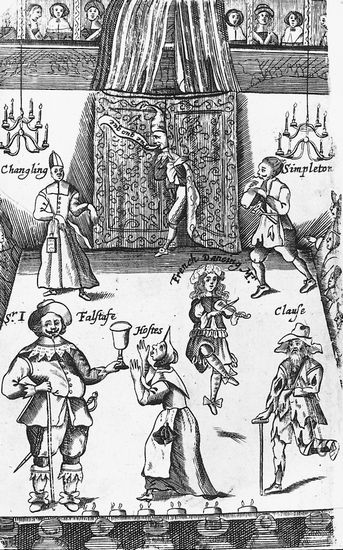 Changling
Simpleton
French Dancing Mr.
Sr. I Falstafe
Hostes
Clause